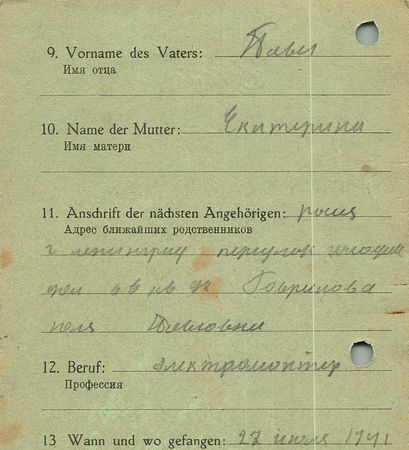 9. Vorname des Vaters: Павел
Имя отца
10. Name der Mutter: Екатерина
Имя матери
11. Anschrift der nächsten Angehörigen:
Адрес ближайших родственников
г ленинград переулок
Гаврилова
Павловна
12. Beruf: электромонтер
Профессия
13 Wann und wo gefangen: 27 июля 1941